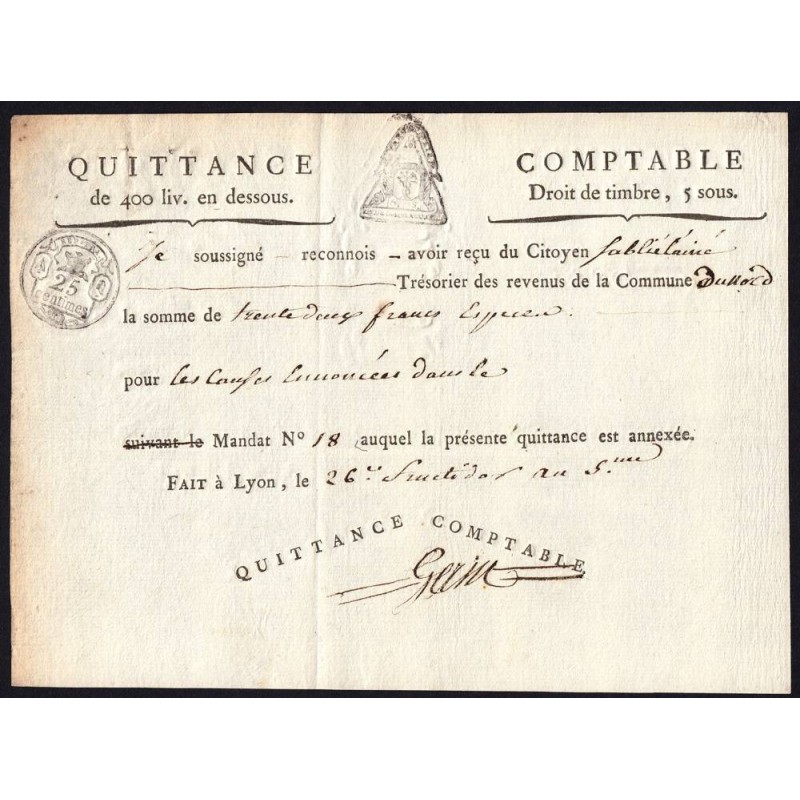 QUITTANCE COMPTABLE
de 400 liv. en dessous. Droit de timbre, 5 sous.
Je soussigné reconnois avoir reçu du Citoyen
25 centimes
Trésorier des revenus de la Commune Du Nord
la somme de trente deux francs Especes
pour les causes Ennoncées dans le
suivant le Mandat N° 18 auquel la présente quittance est annexée.
FAIT à Lyon, le 26 fructidor an 5.me
QUITTANCE COMPTABLE